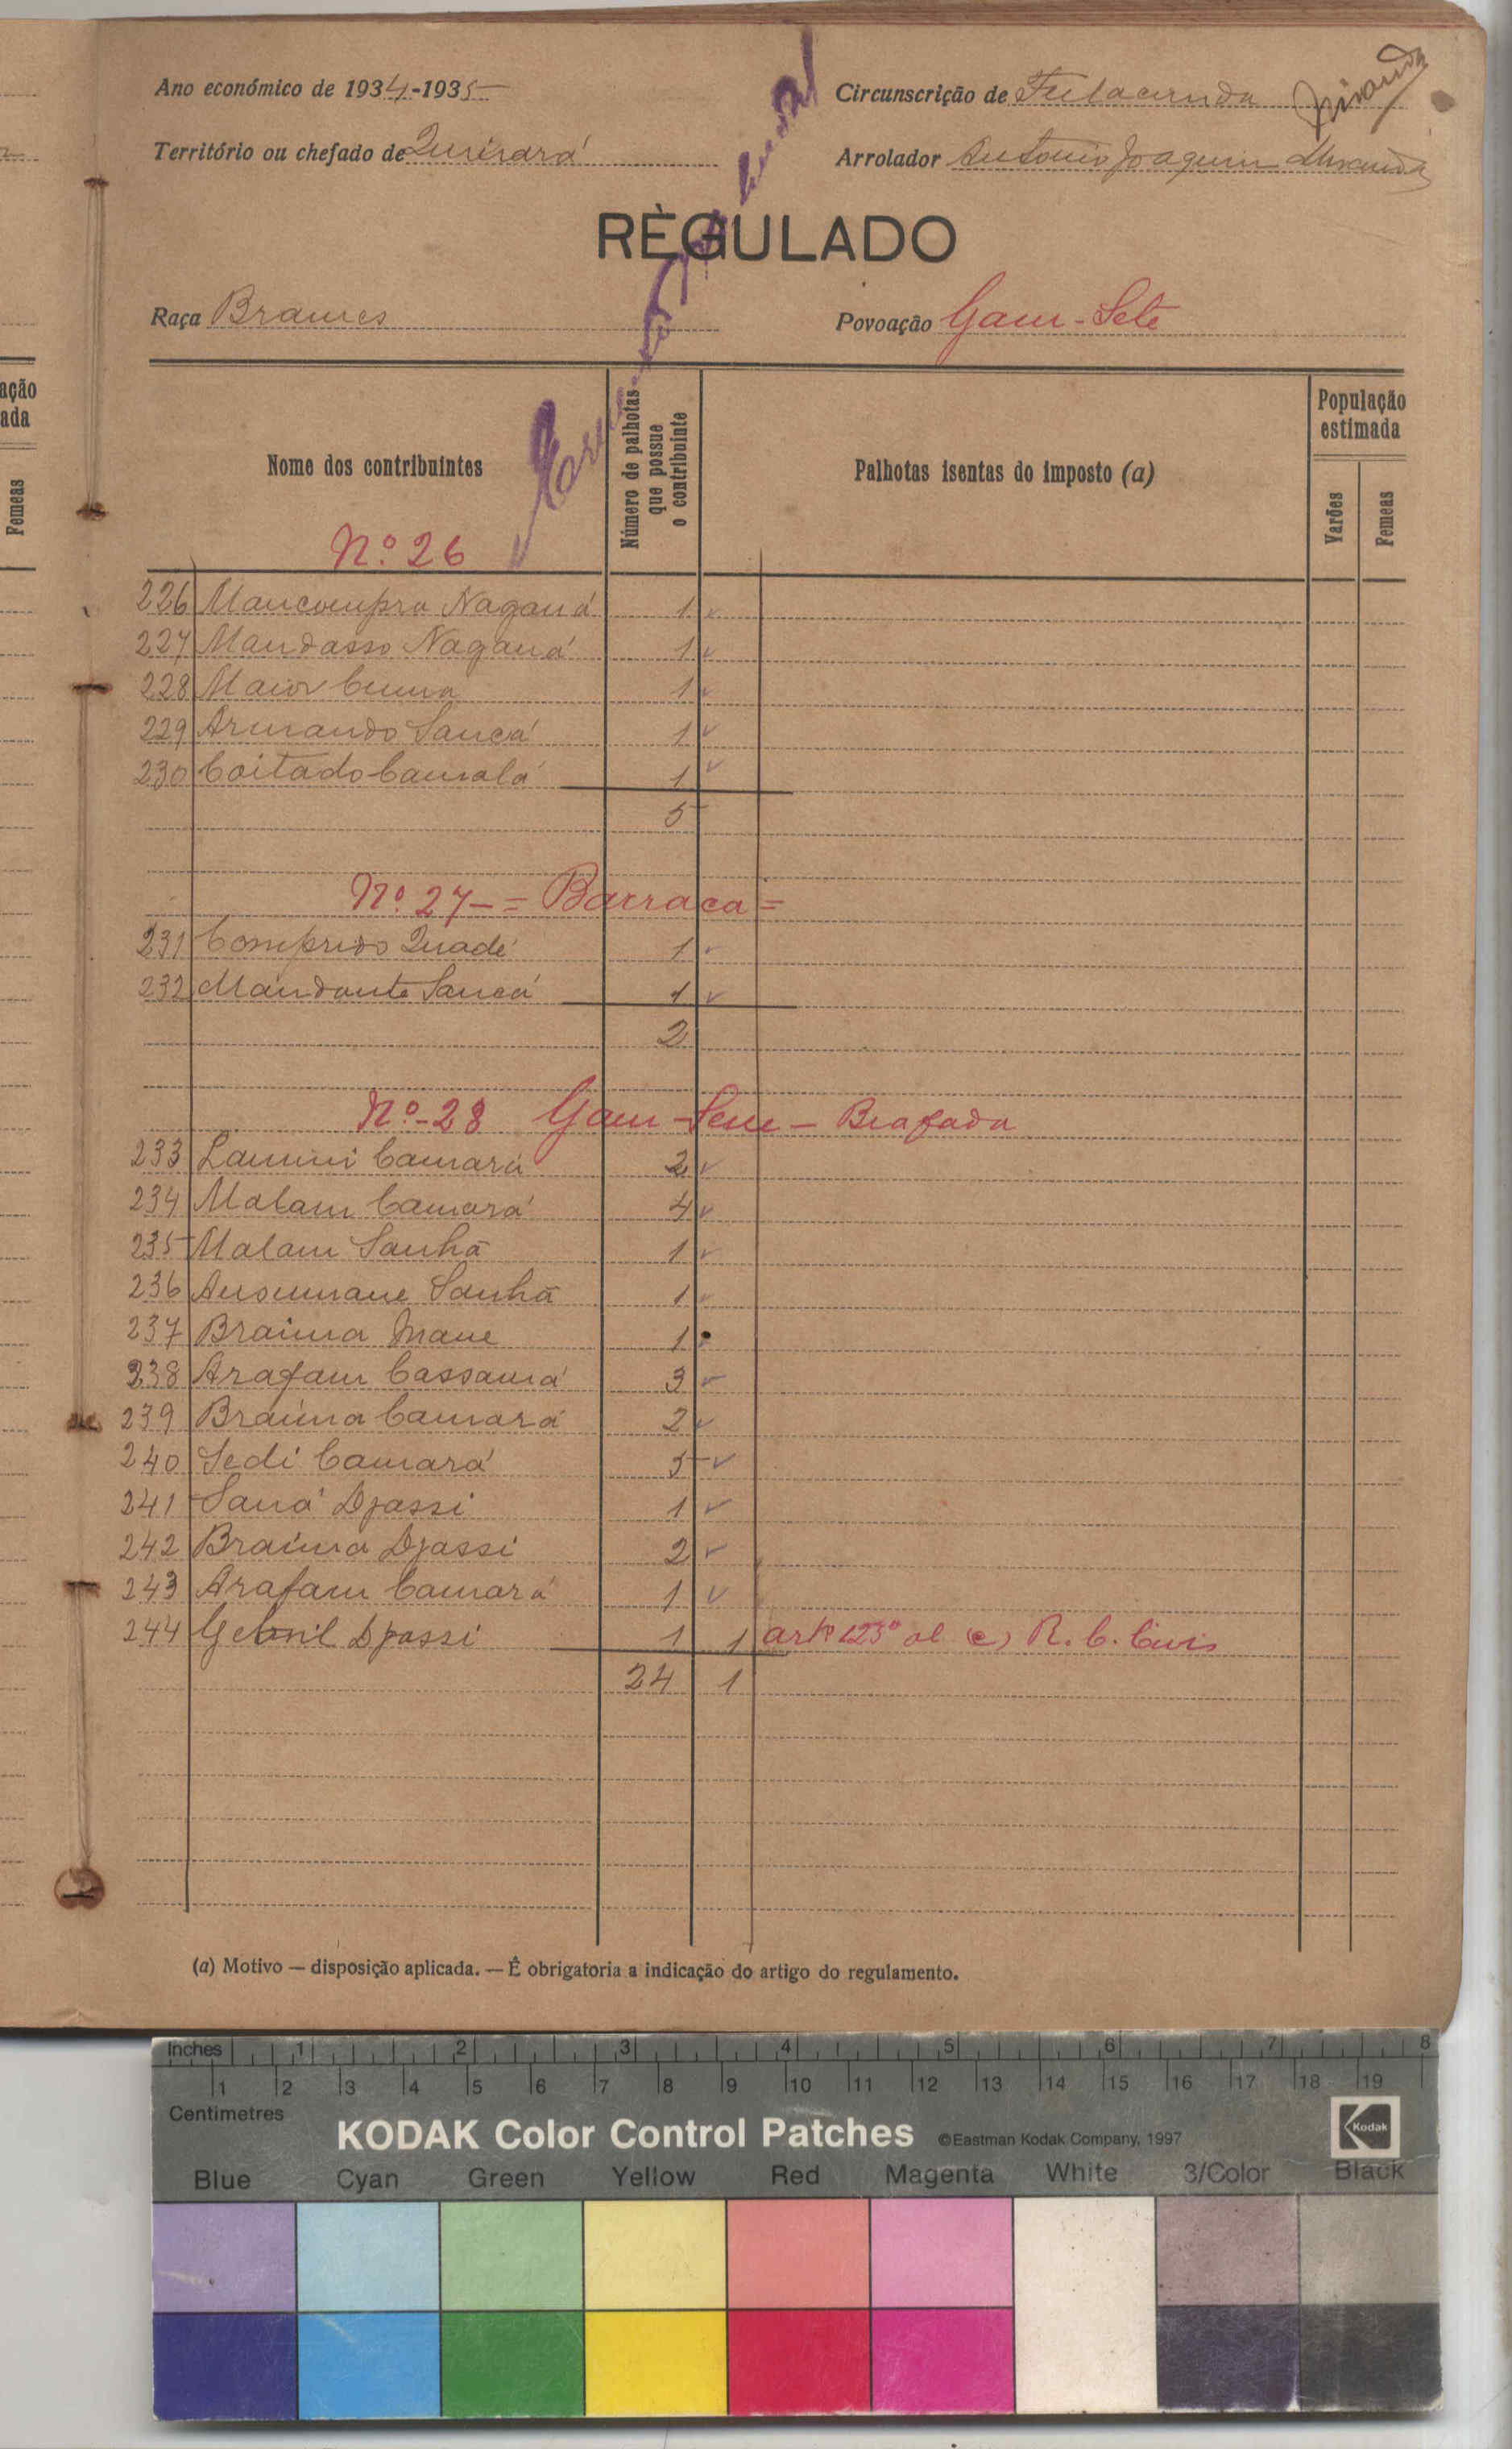 Ano económico de 1934-1935
Circunscrição de Fulacunda
Território ou chefado de Quinará
Arrolador Antonio Joaquim Miranda
Miranda
RÈGULADO
Raça Brames
Povoação Gam-Sete
ação
ada
Femeas
Nome dos contribuintes
Número de palhotas que possue o contribuinte
Palhotas isentas do imposto (a)
População estimada
Varões
Femeas
Nº 26
226 Mancompra Naganá 1
227 Mandasso Naganá 1
228 Maior 1
229 Armando Sancá 1
230 Coitado Camalá 1
5
Nº 27 - = Barraca =
231 Comprido Quadé 1
232 Mandante Sancá 1
2
Nº-28 Gam-Sene - Beafada
233 Lamini Camará 2
234 Malam Camará 4
235 Malam Sanhá 1
236 Ansumane Sanhá 1
237 Braima Mane 1
238 Arafam Cassamá 3
239 Braima Camará 2
240 Sedi Camará 5
241 Saná Djassi 1
242 Braima Djassi 2
243 Arafam Camará 1
244 Djassi 1 1 artº 123º al (c) R. C. Civis
24 1
(a) Motivo — disposição aplicada. — É obrigatoria a indicação do artigo do regulamento.
Inches 1 2 3 4 5 6 7 8
1 2 3 4 5 6 7 8 9 10 11 12 13 14 15 16 17 18 19
Centimetres
KODAK Color Control Patches ©Eastman Kodak Company, 1997 Kodak
Blue Cyan Green Yellow Red Magenta White 3/Color Black